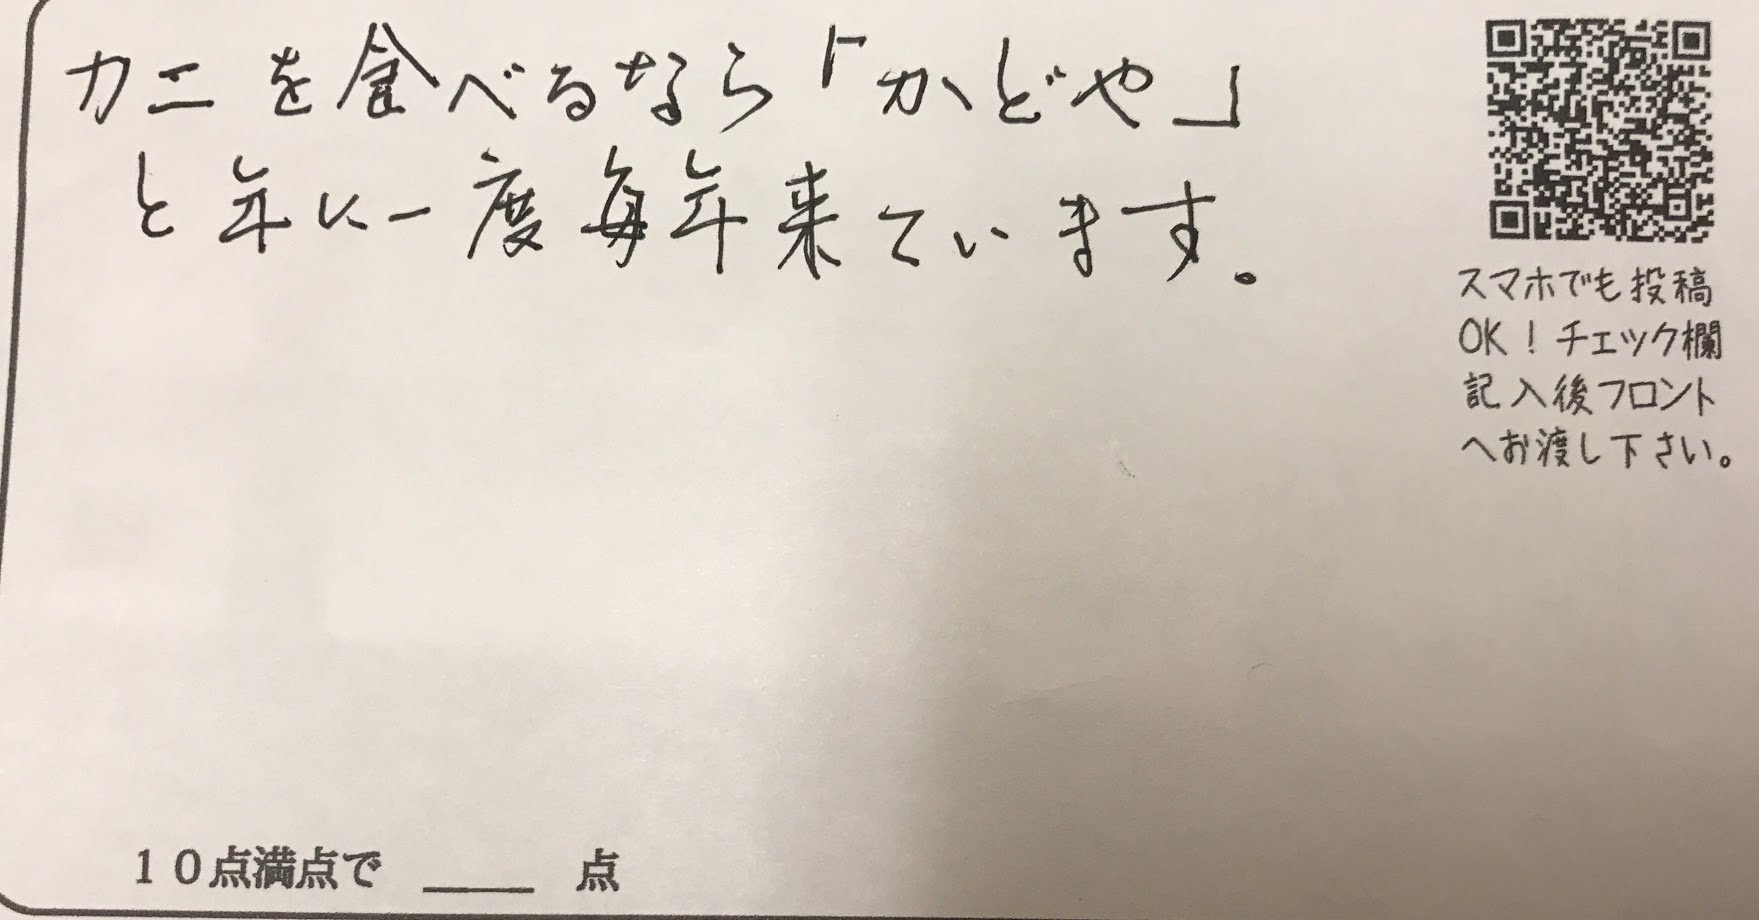 カニを食べるなら「かどや」
と年に一度毎年来ています。
スマホでも投稿
OK！チェック欄
記入後フロント
へお渡し下さい。
10点満点で ____ 点